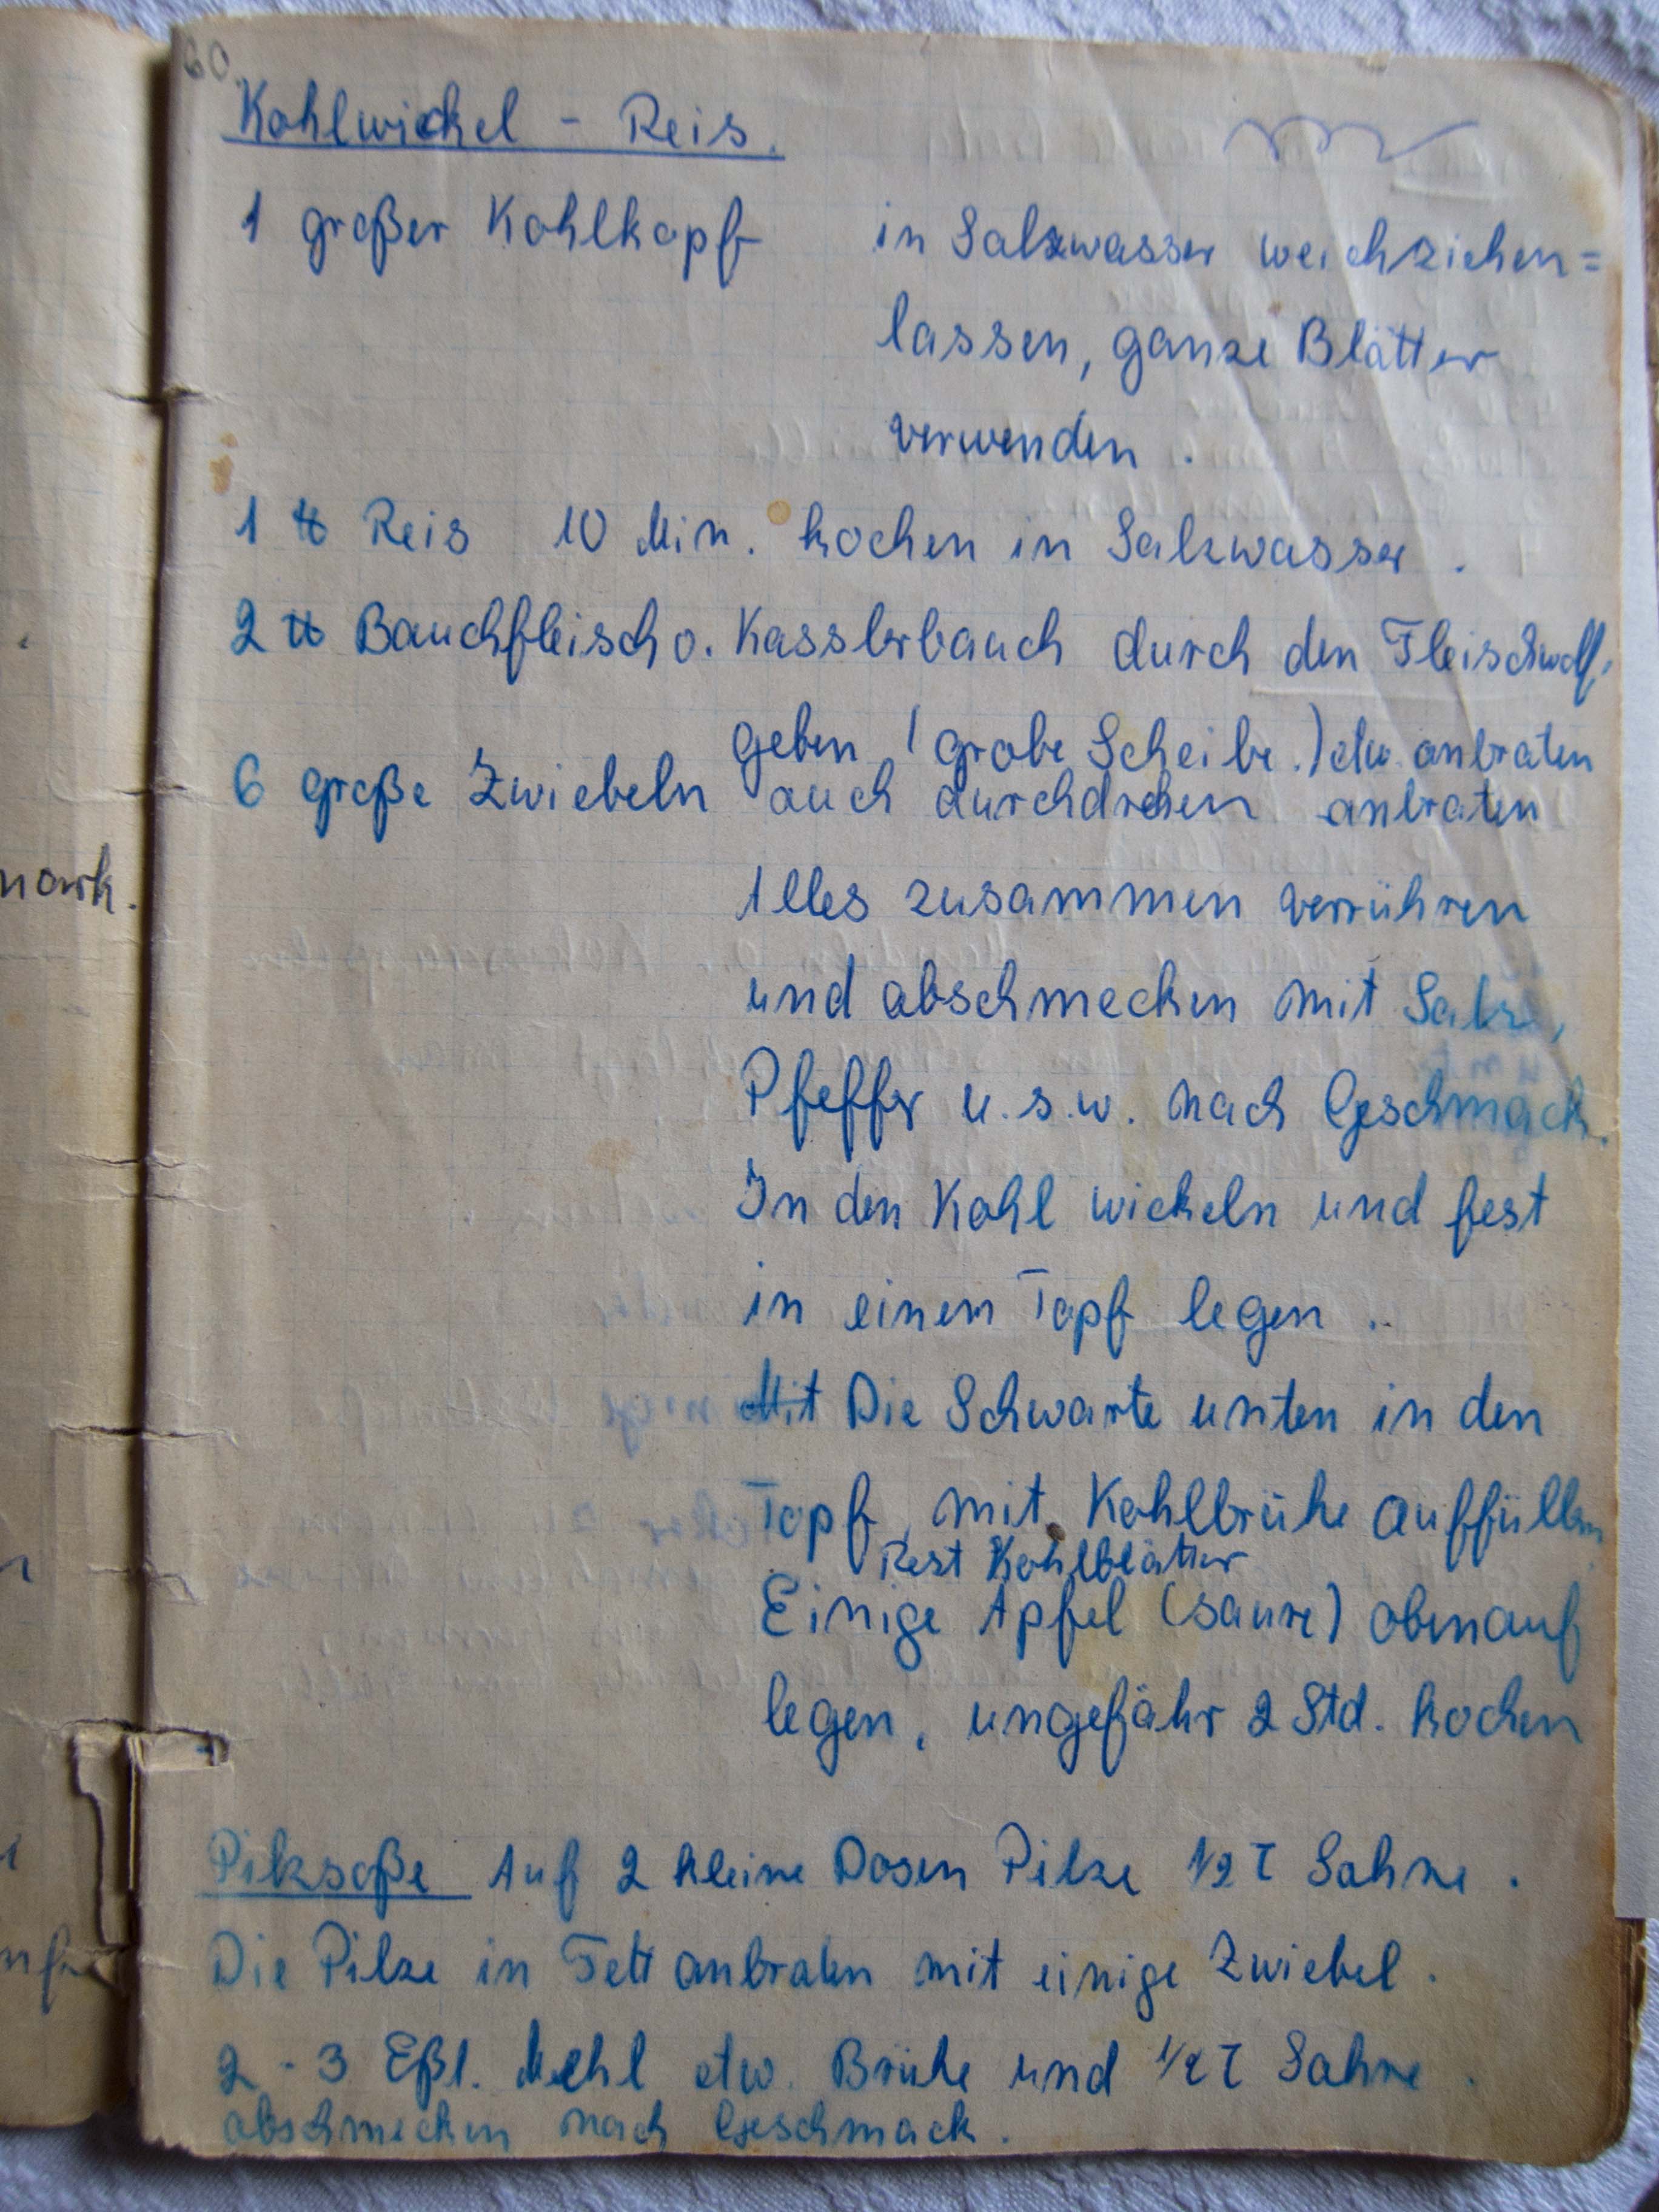 60.
Kohlwickel - Reis.
1 großer Kohlkopf in Salzwasser weichziehen=
lassen, ganze Blätter
verwenden.
1 ℔ Reis 10 Min. kochen in Salzwasser.
2 ℔ Bauchfleisch o. Kasslerbauch durch den Fleischwolf,
geben (grobe Scheibe.) etw. anbraten
6 große Zwiebeln auch durchdrehen anbraten
Alles zusammen verrühren
und abschmecken mit Salz,
Pfeffer u.s.w. nach Geschmack.
In den Kohl wickeln und fest
in einem Topf legen.
Mit Die Schwarte unten in den
Topf, mit Kohlbrühe auffüllen
Rest Kohlblätter
Einige Äpfel (saure) obenauf
legen, ungefähr 2 Std. kochen
Pilzsoße Auf 2 kleine Dosen Pilze 1/2 T Sahne.
Die Pilze in Fett anbraten mit einige Zwiebel.
2 - 3 Eßl. Mehl etw. Brühe und 1/2 T Sahne.
abschmecken nach Geschmack.
mark.